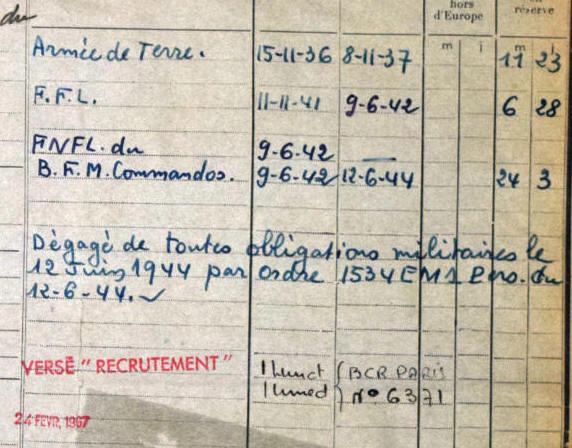 du
hors
d'Europe
réserve
m i m j
Armée de Terre. 15-11-36 8-11-37 11 23
F.F.L. 11-11-41 9-6-42 6 28
FNFL. du 9-6-42 —
B.F.M. Commandos. 9-6-42 12-6-44 24 3
Dégagé de toutes obligations militaires le
12 Juin 1944 par ordre 1534 EM1 Pers. du
12-6-44.
VERSÉ "RECRUTEMENT" (BCR PARIS
N° 6371
24 FEVR. 1967